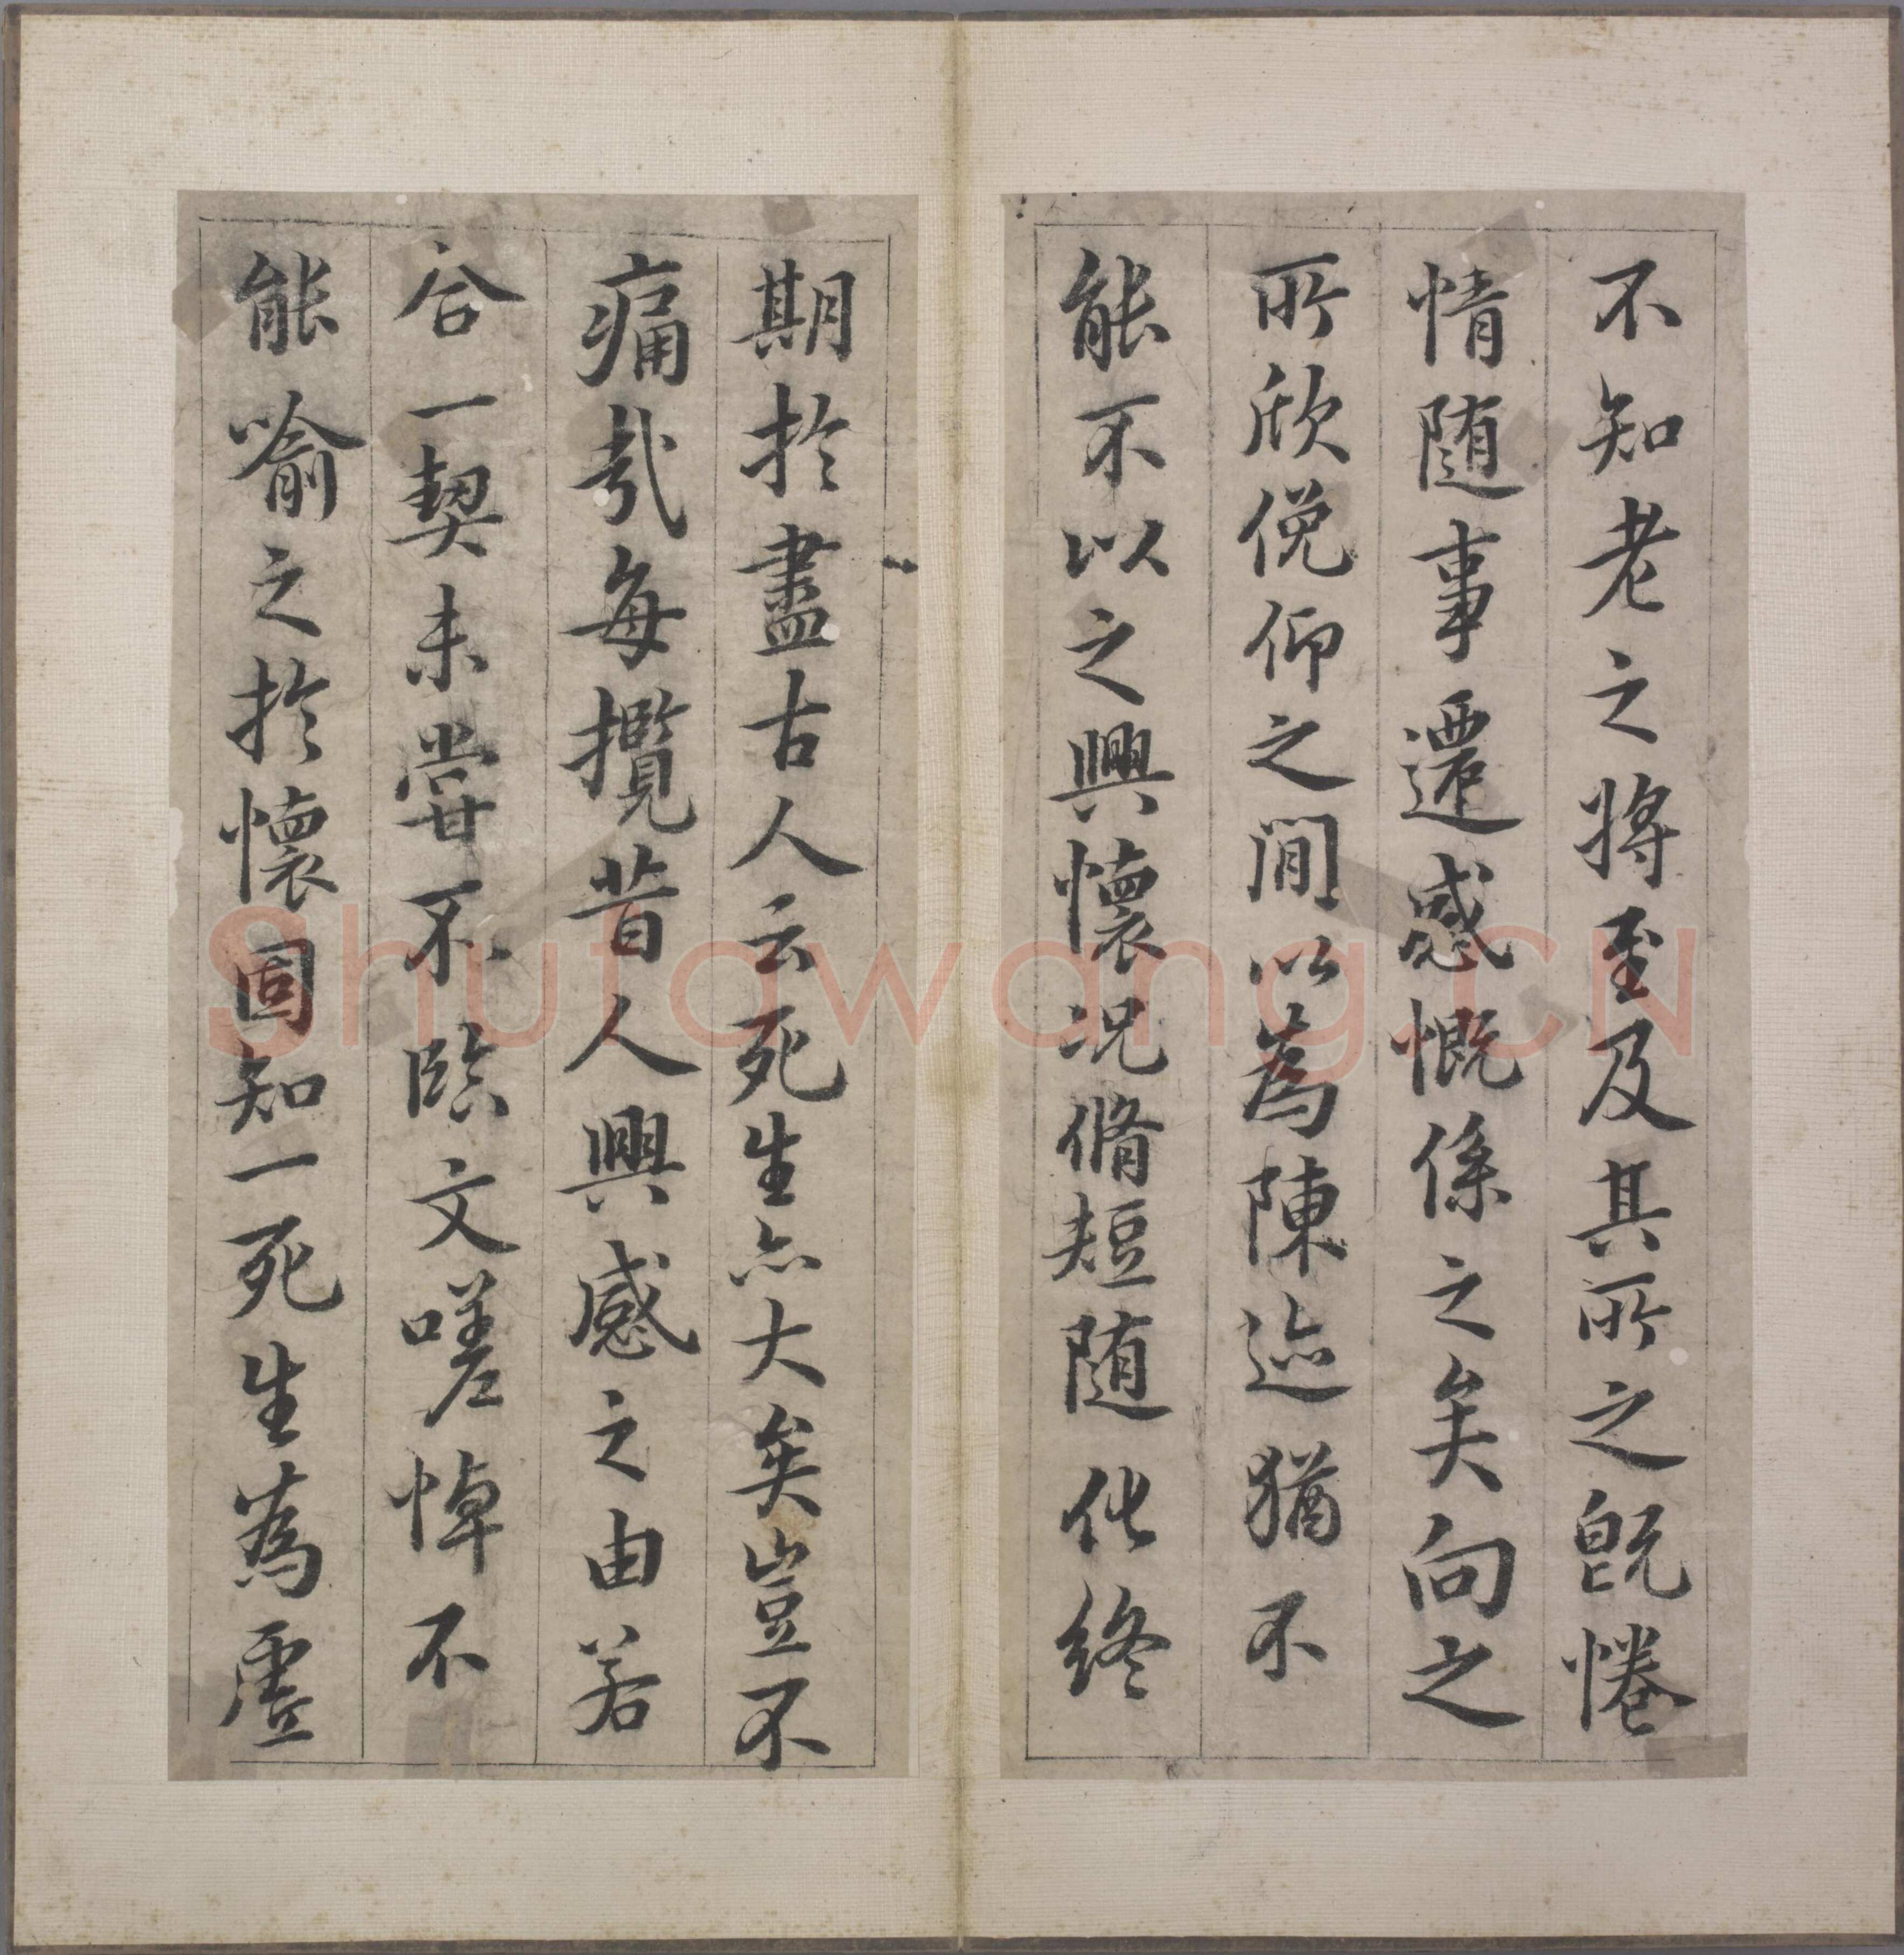 不知老之將至及其所之既惓
情隨事遷感慨係之矣向之
所欣俛仰之間以為陳迹猶不
能不以之興懷況脩短隨化終
期於盡古人云死生亦大矣豈不
痛哉每攬昔人興感之由若
合一契未嘗不臨文嗟悼不
能喻之於懷固知一死生為虛
Shufawang.CN